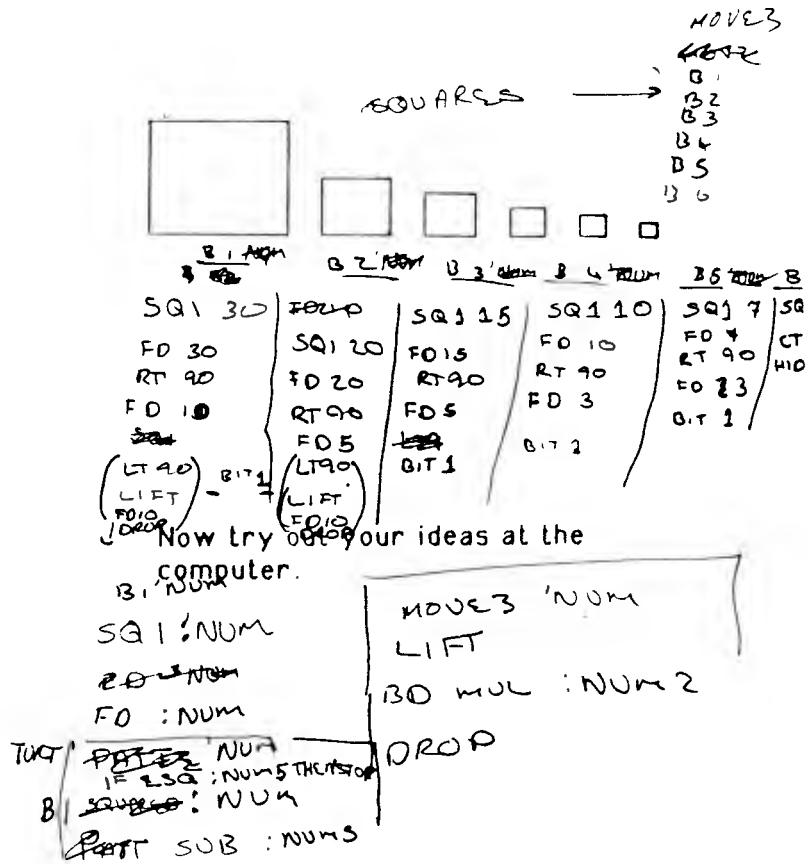 MOVE3
B1
B2
B3
B4
B5
B6
SQUARES
B1
SQ1 30
FD 30
RT 90
FD 10
(LT 90
LIFT
FD10
DROP)
BIT1
B2
SQ1 20
FD 20
RT 90
FD 5
(LT90
LIFT
FD10
DROP)
B3
SQ1 15
FD 15
RT 90
FD 5
BIT 1
B4
SQ1 10
FD 10
RT 90
FD 3
BIT 1
B5
SQ1 7
FD
RT 90
FD
BIT 1
B
SQ
CT
HID
Now try out your ideas at the
computer.
B1 'NUM
SQ1 :NUM
FD :NUM
'NUM
:NUM 5 THEN STOP
B1 : NUM
SUB :NUM5
MOVE3 'NUM
LIFT
BD MUL :NUM 2
DROP